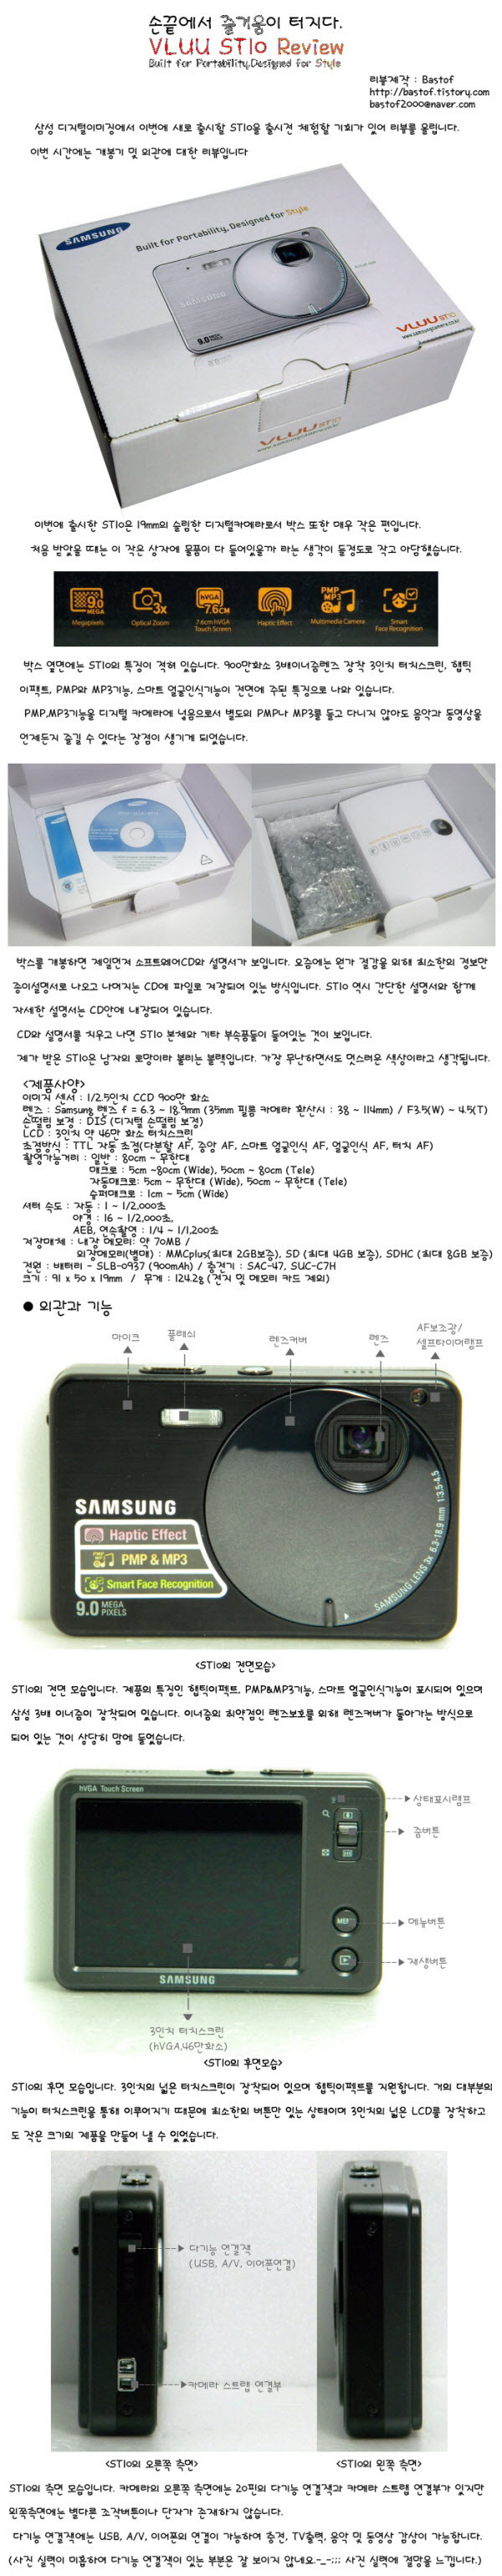 손끝에서 즐거움이 터지다.
VLUU ST10 Review
Built for Portability, Designed for Style
리뷰제작 : Bastof
http://bastof.tistory.com
bastof2000@naver.com
삼성 디지털이미징에서 이번에 새로 출시할 ST10을 출시전 체험할 기회가 있어 리뷰를 올립니다.
이번 시간에는 개봉기 및 외관에 대한 리뷰입니다
SAMSUNG
Built for Portability, Designed for Style
SAMSUNG
9.0 MEGA PIXELS
VLUU ST10
www.samsungcamera.co.kr
VLUU ST10
이번에 출시한 ST10은 19mm의 슬림한 디지털카메라로서 박스 또한 매우 작은 편입니다.
처음 받았을 때는 이 작은 상자에 물품이 다 들어있을까 라는 생각이 들정도로 작고 아담했습니다.
9.0 MEGA
3x
hVGA 7.6CM
PMP MP3
Megapixels
Optical Zoom
7.6cm hVGA Touch Screen
Haptic Effect
Multimedia Camera
Smart Face Recognition
박스 옆면에는 ST10의 특징이 적혀 있습니다. 900만화소 3배이너줌렌즈 장착 3인치 터치스크린, 햅틱
이펙트, PMP와 MP3기능, 스마트 얼굴인식기능이 전면에 주된 특징으로 나와 있습니다.
PMP,MP3기능을 디지털 카메라에 넣음으로서 별도의 PMP나 MP3를 들고 다니지 않아도 음악과 동영상을
언제든지 즐길 수 있다는 장점이 생기게 되었습니다.
박스를 개봉하면 제일먼저 소프트웨어CD와 설명서가 보입니다. 요즘에는 원가 절감을 위해 최소한의 정보만
종이설명서로 나오고 나머지는 CD에 파일로 저장되어 있는 방식입니다. ST10 역시 간단한 설명서와 함께
자세한 설명서는 CD안에 내장되어 있습니다.
CD와 설명서를 치우고 나면 ST10 본체와 기타 부속품들이 들어있는 것이 보입니다.
제가 받은 ST10은 남자의 로망이라 불리는 블랙입니다. 가장 무난하면서도 멋스러운 색상이라고 생각됩니다.
<제품사양>
이미지 센서 : 1/2.5인치 CCD 900만 화소
렌즈 : Samsung 렌즈 f = 6.3 ~ 18.9mm (35mm 필름 카메라 환산시 : 38 ~ 114mm) / F3.5(W) ~ 4.5(T)
손떨림 보정 : DIS (디지털 손떨림 보정)
LCD : 3인치 약 46만 화소 터치스크린
초점방식 : TTL 자동 초점(다분할 AF, 중앙 AF, 스마트 얼굴인식 AF, 얼굴인식 AF, 터치 AF)
촬영가능거리 : 일반 : 80cm ~ 무한대
매크로 : 5cm ~80cm (Wide), 50cm ~ 80cm (Tele)
자동매크로: 5cm ~ 무한대 (Wide), 50cm ~ 무한대 (Tele)
슈퍼매크로 : 1cm ~ 5cm (Wide)
셔터 속도 : 자동 : 1 ~ 1/2,000초
야경 : 16 ~ 1/2,000초,
AEB, 연속촬영 : 1/4 ~ 1/1,200초
저장매체 : 내장 메모리: 약 70MB /
외장메모리(별매) : MMCplus(최대 2GB보증), SD (최대 4GB 보증), SDHC (최대 8GB 보증)
전원 : 배터리 - SLB-0937 (900mAh) / 충전기 : SAC-47, SUC-C7H
크기 : 91 x 50 x 19mm / 무게 : 124.2g (전지 및 메모리 카드 제외)
● 외관과 기능
마이크
플래쉬
렌즈커버
렌즈
AF보조광/
셀프타이머램프
SAMSUNG
Haptic Effect
PMP & MP3
Smart Face Recognition
9.0 MEGA PIXELS
SAMSUNG LENS 3x 6.3-18.9 mm 1:3.5-4.5
<ST10의 전면모습>
ST10의 전면 모습입니다. 제품의 특징인 햅틱이펙트, PMP&MP3기능, 스마트 얼굴인식기능이 표시되어 있으며
삼성 3배 이너줌이 장착되어 있습니다. 이너줌의 취약점인 렌즈보호를 위해 렌즈커버가 돌아가는 방식으로
되어 있는 것이 상당히 맘에 들었습니다.
hVGA Touch Screen
상태표시램프
줌버튼
메뉴버튼
재생버튼
SAMSUNG
3인치 터치스크린
(hVGA,46만화소)
<ST10의 후면모습>
ST10의 후면 모습입니다. 3인치의 넓은 터치스크린이 장착되어 있으며 햅틱이펙트를 지원합니다. 거의 대부분의
기능이 터치스크린을 통해 이루어지기 때문에 최소한의 버튼만 있는 상태이며 3인치의 넓은 LCD를 장착하고
도 작은 크기의 제품을 만들어 낼 수 있었습니다.
다기능 연결잭
(USB, A/V, 이어폰연결)
카메라 스트랩 연결부
<ST10의 오른쪽 측면>
<ST10의 왼쪽 측면>
ST10의 측면 모습입니다. 카메라의 오른쪽 측면에는 20핀의 다기능 연결잭과 카메라 스트랩 연결부가 있지만
왼쪽측면에는 별다른 조작버튼이나 단자가 존재하지 않습니다.
다기능 연결잭에는 USB, A/V, 이어폰의 연결이 가능하여 충전, TV출력, 음악 및 동영상 감상이 가능합니다.
(사진 실력이 미흡하여 다기능 연결잭이 있는 부분은 잘 보이지 않네요.-_-;;; 사진 실력에 절망을 느낍니다.)